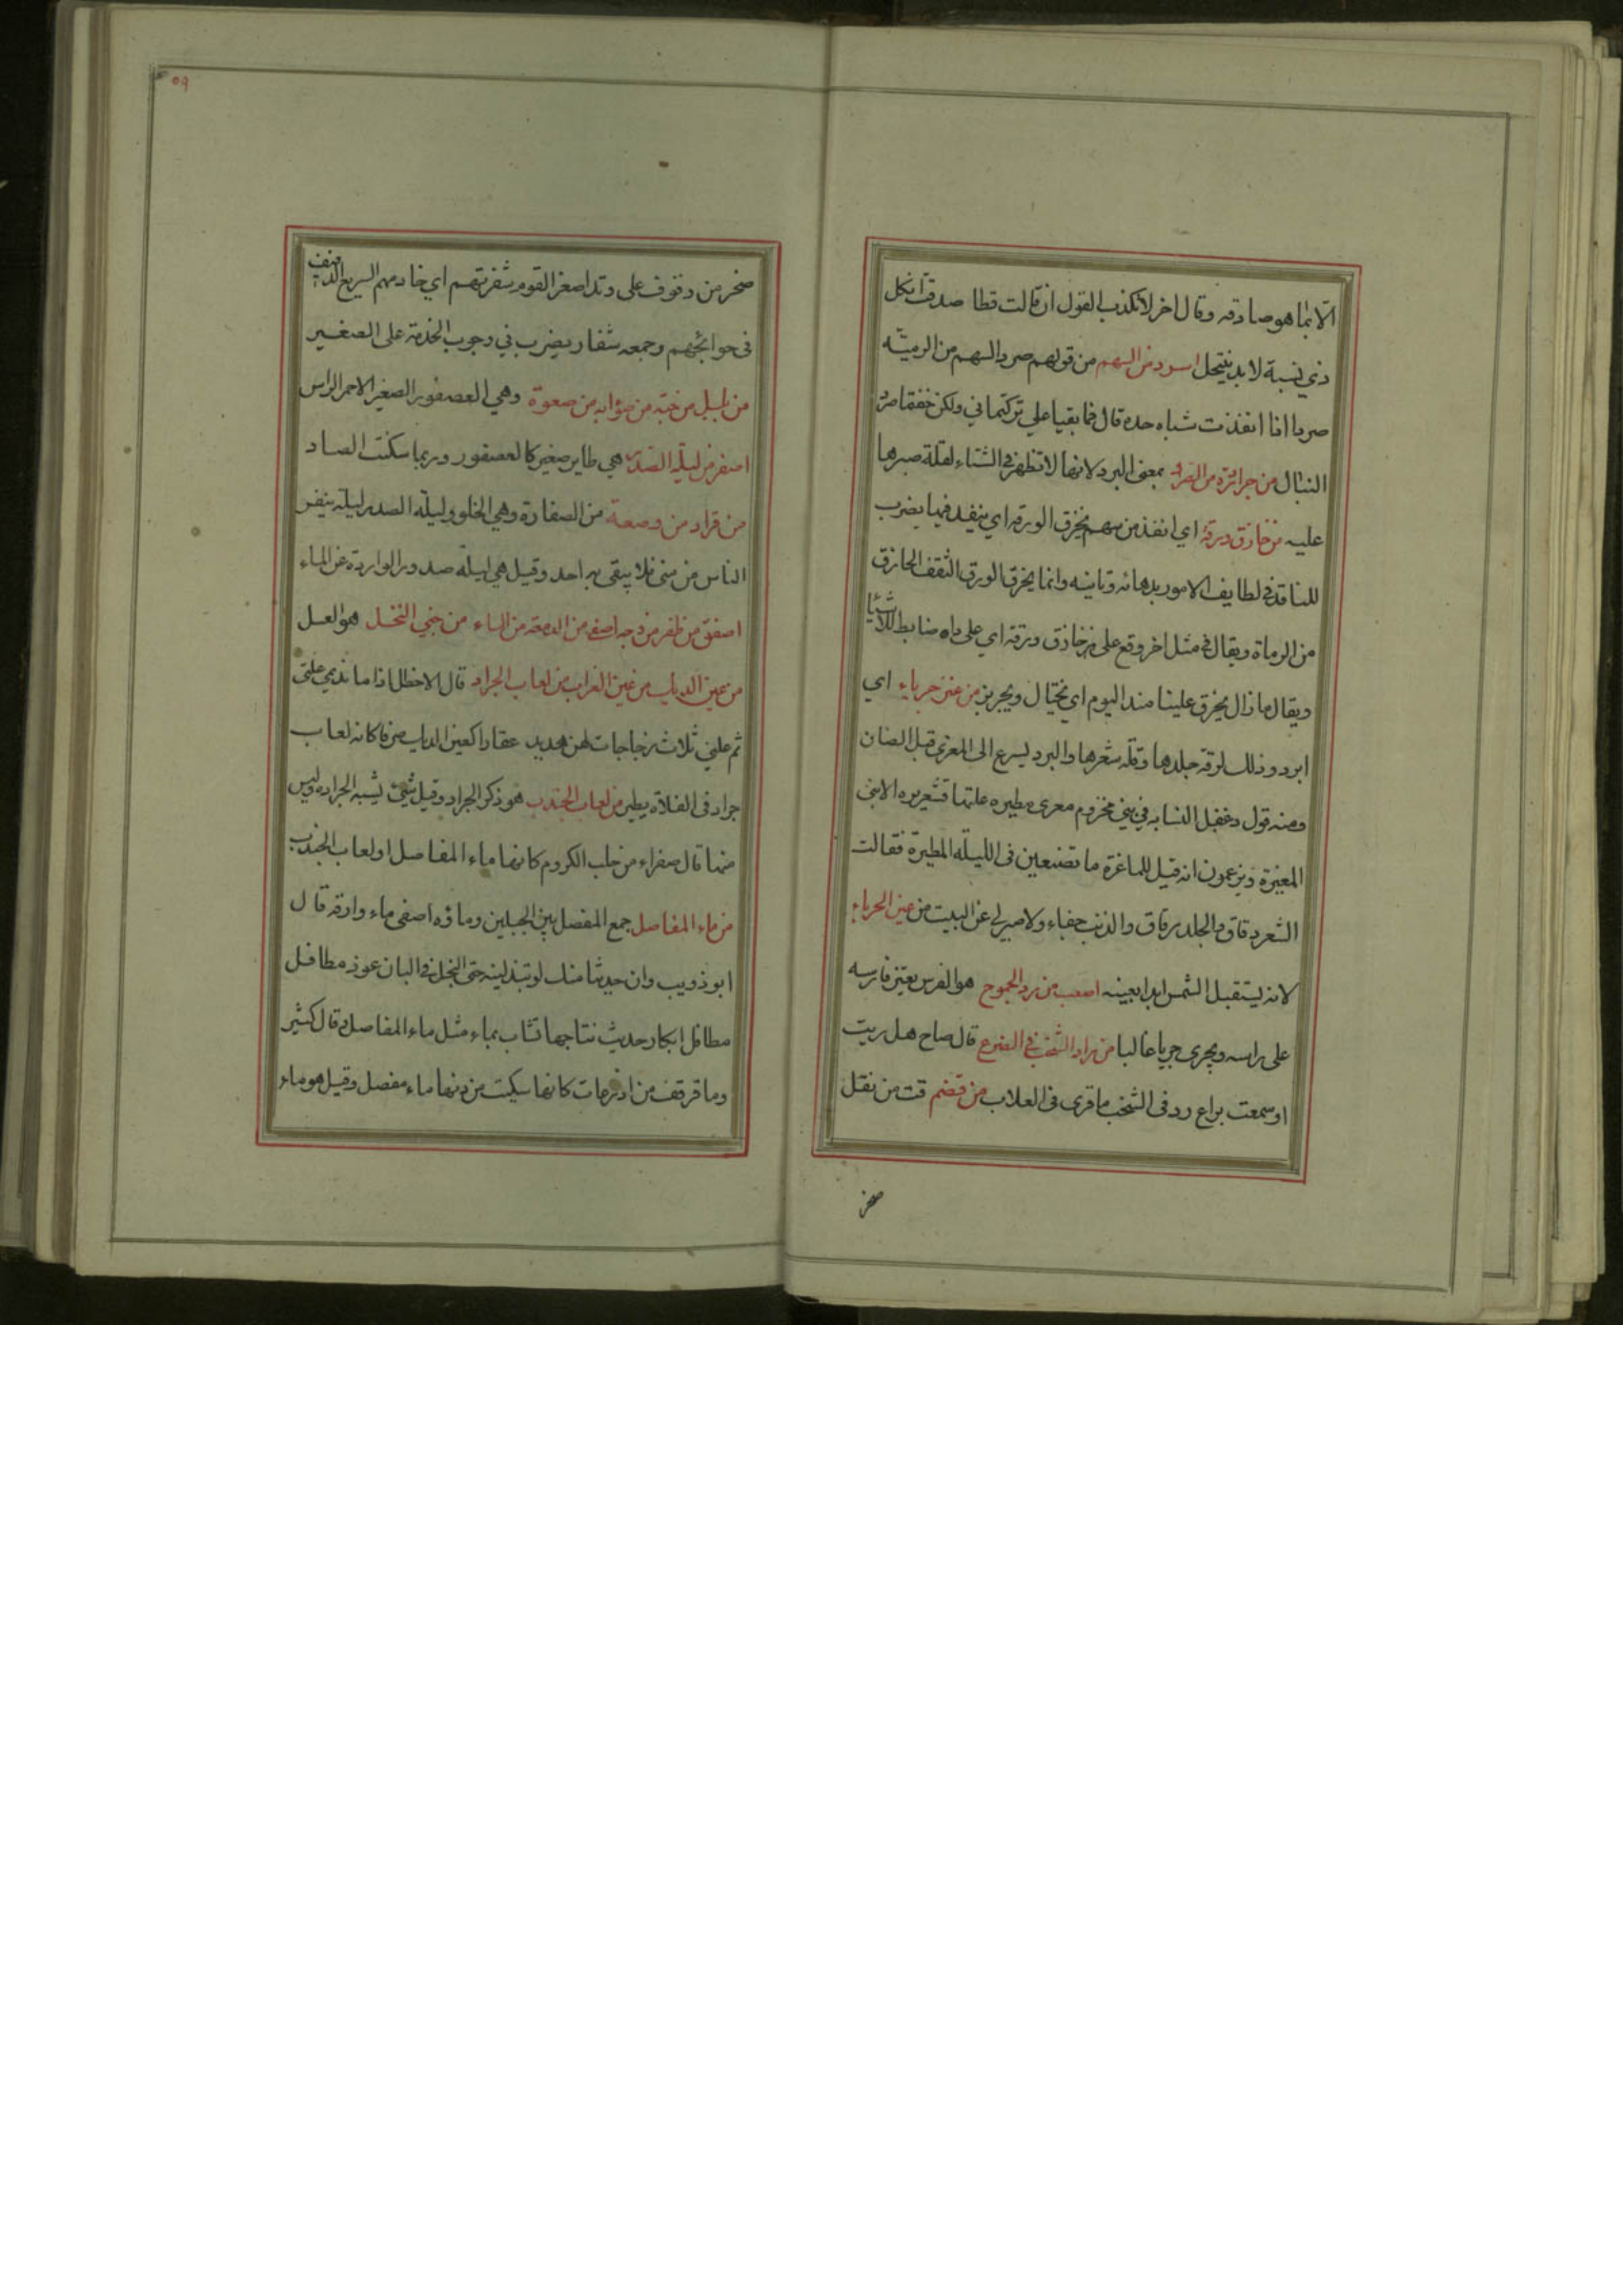 الا بما هو صادقه وقال اخر لا تكذب القول ان قالت قطا صدقت اذ كل
ذي نسبة لا بد ينتحل اسرد من السهم من قولهم صرد السهم من الرميّه
صردا اذا انفذت شباه حده قال فما بقيا علي تركتماني ولكن خفتما صرد
النبال من جرادة من القراد بمعنى البرد لانها لا تظهر في الشتاء لقلة صبرها
عليه من خازق ورقه اي انفذ من سهم يخزق الورقه اي ينفد فيما يضرب
للناقد في لطايف الامور بدهائه وتانيه وانما يخزق الورق الثقف الحاذق
من الرماة ويقال في مثل اخر وقع على خازق ورقه اي على داه ضابط للاشيا
ويقال ما زال يخزق علينا منذ اليوم اي يختال ويجربز من عنز جرباء اي
ابرد وذلك لرقة جلدها وقلّة شعرها والبرد يسرع الى المعزى قبل الضان
ومنه قول دغفل النسابه في بني مخزوم معزى مطيره علتها قشعريره الا بني
المغيرة ويزعمون انه قيل للماعزة ما تصنعين فى الليلة المطيرة فقالت
الشعر دقاق والجلد رقاق والذنب جفاء ولا صبر لي عن البيت من عين الحرباء
لانه يستقبل الشمس ابدا بعينه اصعب من رد الجموح هو الفرس يعتز فارسه
على راسه ويجرى جريا غالبا من راد الشخب في الضرع قال صاح هل ريت
او سمعت براع رد فى الشخب ما قرى فى العلاب من قضم قت من نقل
صخر
٥٩
صخر من وقوف على وتد اصغر القوم شفرتهم اي خادمهم السريع الدفيف
فى حوائجهم وجمعه شفار يضرب في وجوب الخدمة على الصغير
من بلبل من حبّه من صؤابه من صعوة وهي العصفور الصغير الاحمر الراس
اصفر من ليلة الصدر هي طاير صغير كالعصفور وربما سكنت الصاد
من قراد من وصعة من الصفارة وهي الخلو وليلة الصدر ليلة ينفر
الناس من منى فلا يبقى به احد وقيل هي ليلة صدور الواردة عن الماء
اصفق من ظفر من وجه اصفى من الدمعة من الماء من جني النحل هو العسل
من عين الديك من عين الغراب من لعاب الجراد قال الاخطل اذا ما نديمي علني
ثم علني ثلاث زجاجات لهن هدير عقارا كعين الديك صرفا كانه لعاب
جراد فى الفلاة يطير من لعاب الجندب هو ذكر الجراد وقيل شئ يشبه الجراد وليس
منها قال صفراء من حلب الكروم كانها ماء المفاصل او لعاب الجندب
من ماء المفاصل جمع المفصل بين الجبلين وماؤه اصفى ماء وارقه قال
ابو ذويب وان حديثا منك لو تبذلينه جنى النحل في البان عوذ مطافل
مطافل ابكار حديث نتاجها تشاب بماء مثل ماء المفاصل وقال كثير
وما قرقف من اذرعات كانها سكبت من دنها ماء مفصل وقيل هو ماء